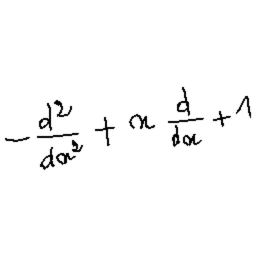 -\frac{d^2}{dx^2} + x \frac{d}{dx} + 1